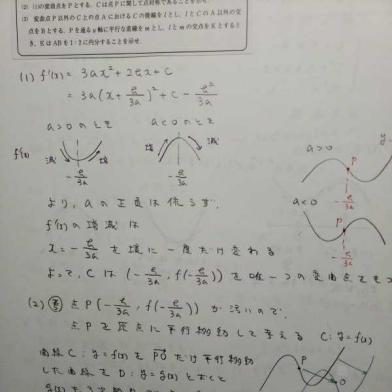 (2) (1)の変曲点をPとする. Cは点Pに関して点対称であることを示せ.
(3) 変曲点P以外のC上の点AにおけるCの接線をlとし, lとCのA以外の交
点をBとする. Pを通るy軸に平行な直線をmとし, lとmの交点をKとすると
き, KはABを1:2に内分することを示せ.
(1) f'(x) = 3ax² + 2bx + c
= 3a(x + b/3a)² + c - b²/3a
a>0のとき a<0のとき
f'(x) 減 増 増 減
-b/3a -b/3a
a>0 P -b/3a
a<0 P -b/3a
より, aの正負は依らず,
f'(x)の増減は
x = -b/3a を境に一度だけ変わる
よって, Cは (-b/3a, f(-b/3a)) を唯一つの変曲点をもつ
(2) 点P(-b/3a, f(-b/3a)) が
点Pを原点に平行移動して考える C: y=f(x)
曲線C: y=f(x) を PO だけ平行移動
した曲線を D: y=g(x) とおくと